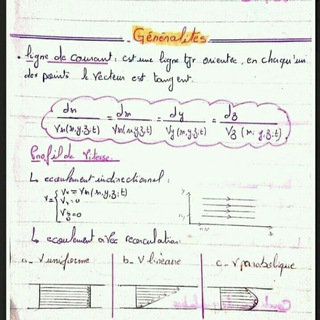 Généralités
• ligne de courant : c'est une ligne tjr orientée, en chaqu'un
des points le vecteur est tangent.
dm / Vm(x,y,z,t) = dx / Vx(x,y,z,t) = dy / Vy(x,y,z,t) = dz / Vz(x,y,z,t)
Profil de vitesse.
↳ ecoulement unidirectionnel :
V = { Vx = Vx(x,y,z,t)
Vy = 0
Vz = 0
↳ ecoulement avec recirculation:
a- V uniforme b- V lineaire c- V parabolique